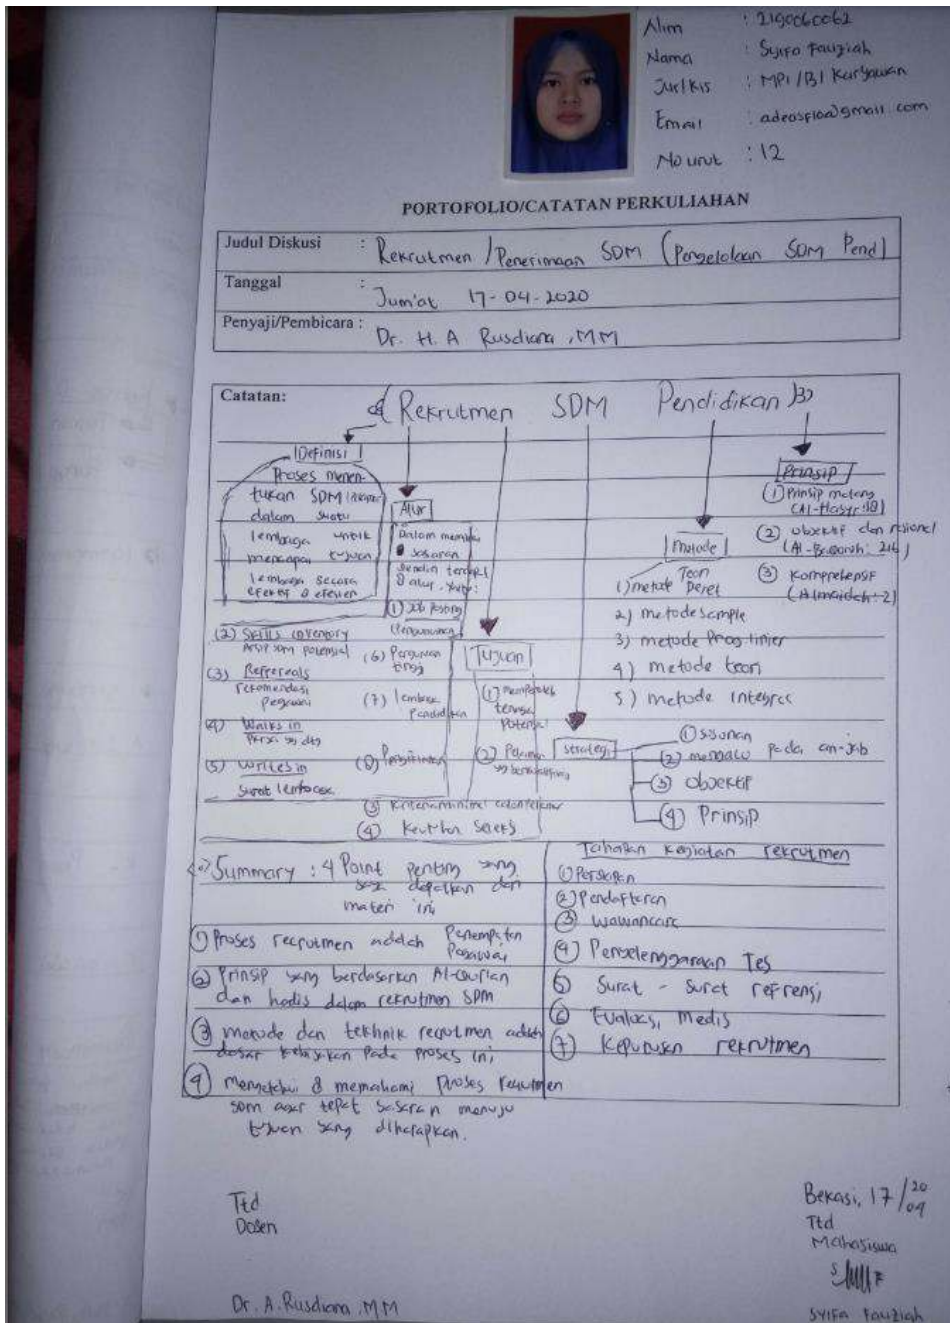 Nim : 2190060062
Nama : Syifa Fauziah
Jur/Kls : MPI / B1 Karyawan
Email : adeasfloa@gmail.com
No urut : 12
PORTOFOLIO/CATATAN PERKULIAHAN
Judul Diskusi : Rekrutmen / Penerimaan SDM (Pengelolaan SDM Pend)
Tanggal : Jum'at 17-04-2020
Penyaji/Pembicara : Dr. H. A Rusdiana, MM
Catatan:
Rekrutmen SDM Pendidikan
Definisi
Proses menen-
tukan SDM
dalam suatu
lembaga untuk
mencapai tujuan
lembaga secara
efektif & efisien
Alur
Dalam
sasaran
& alur. yaitu:
(1) Job Posting
(2) Skills inventory
Arsip SDM potensial
(3) Refereals
rekomendasi
pegawai
(4) Walks in
(5) Writes in
Surat
(6) Perguruan
tinggi
(7) lembaga
Pendidikan
(8)
Tujuan
(1) memperoleh
tenaga
Potensial
(2)
(3) Kriteria minimal calon
(4)
Strategi
(1) Susunan
(2) mengacu pada an-job
(3) Objektif
(4) Prinsip
Metode
1) metode Teori Deret
2) metode sample
3) metode Prog linier
4) metode teori
5) metode Integras
Prinsip
(1) Prinsip matang
(Al-Hasyr:18)
(2) Objektif dan rasional
(Al-Baqaroh: 216)
(3) Komprehensif
(Almaidah: 2)
Summary : 4 Point penting yang
saya dapatkan dari
materi ini
(1) Proses recrutmen adalah Penempatan
Pegawai
(2) Prinsip yang berdasarkan Al-Qur'an
dan hadis dalam rekrutmen SDM
(3) metode dan tekhnik recrutmen adalah
dasar kebijakan pada proses ini
(4) mengetahui & memahami proses recrutmen
SDM agar tepat sasaran menuju
tujuan yang diharapkan.
Tahapan kegiatan rekrutmen
(1) Persiapan
(2) Pendaftaran
(3) Wawancara
(4) Penyelenggaraan Tes
(5) Surat - Surat refrensi
(6) Evaluasi Medis
(7) Keputusan rekrutmen
Ttd
Dosen
Dr. A. Rusdiana, MM
Bekasi, 17/20
04
Ttd
Mahasiswa
Syifa Fauziah